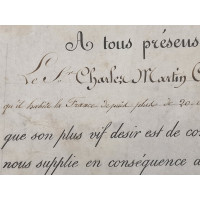 A tous présens
Le Sr. Charles Martin
qu'il habite la France depuis plus de 20
que son plus vif desir est de co
nous supplie en conséquence d